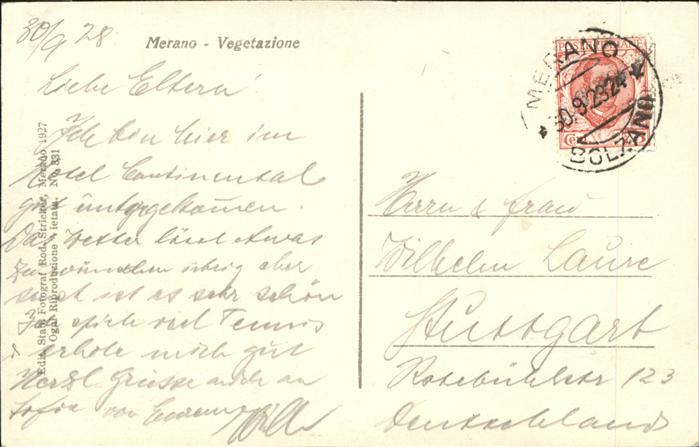 30/9 28
Merano - Vegetazione
Liebe Eltern!
Ich bin hier im
Hotel Continental
gut untergekommen.
Das Wetter lässt etwas
zu wünschen übrig aber
sonst ist es sehr schön
Ich spiele viel Tennis
& erhole mich gut
Herzl Grüsse auch an
von Eurem
Ediz. Stab. Fotograf. Rod. Stricker, Merano 1927
Ogni Riproduzione vietata No. 331
MERANO
30.9.28.24
BOLZANO
Herrn & Frau
Wilhelm Laure
Stuttgart
Rotebühlstr 123
Deutschland